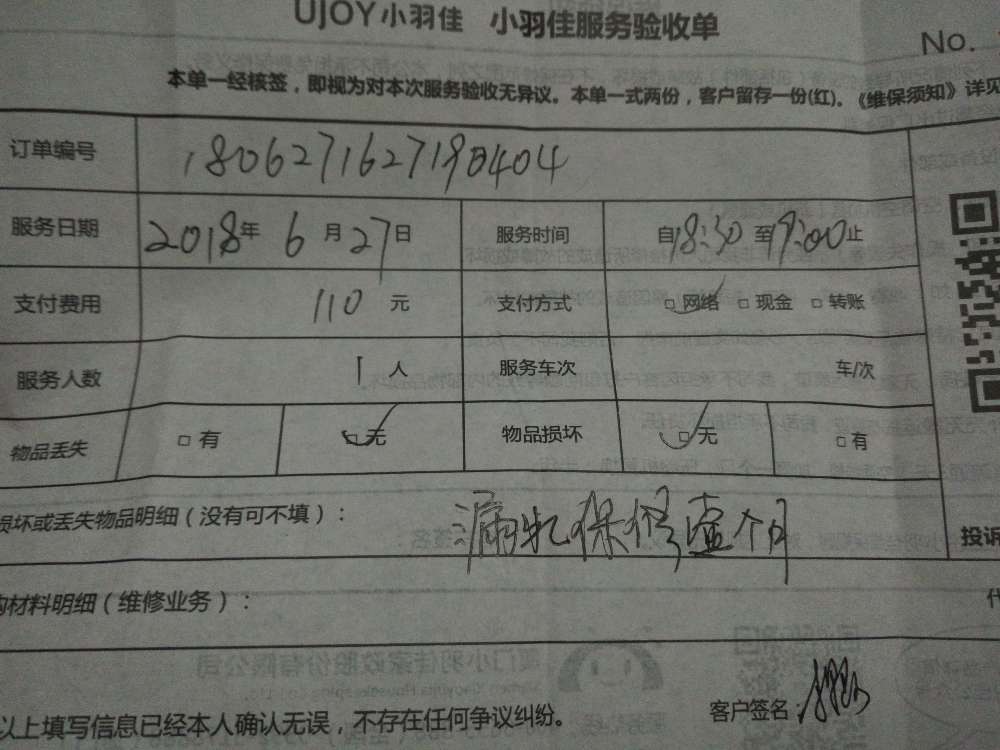 UJOY小羽佳 小羽佳服务验收单
No.
本单一经核签，即视为对本次服务验收无异议。本单一式两份，客户留存一份(红)。《维保须知》详见
订单编号 1806271627190404
服务日期 2018年 6月27日 服务时间 自18:30至19:00止
支付费用 110元 支付方式 □网络 □现金 □转账
服务人数 1人 服务车次 车/次
物品丢失 □有 □无 物品损坏 □无 □有
损坏或丢失物品明细（没有可不填）： 保修壹个月
投诉
材料明细（维修业务）：
以上填写信息已经本人确认无误，不存在任何争议纠纷。
客户签名：